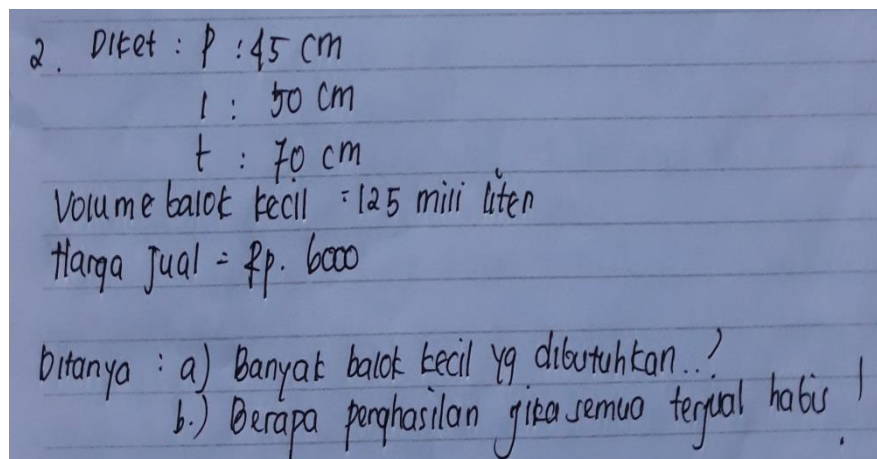 2. Diket : P : 45 cm
l : 50 cm
t : 70 cm
Volume balok kecil = 125 mili liter
Harga Jual = Rp. 6000
Ditanya : a) Banyak balok kecil yg dibutuhkan..?
b.) Berapa penghasilan jika semua terjual habis !